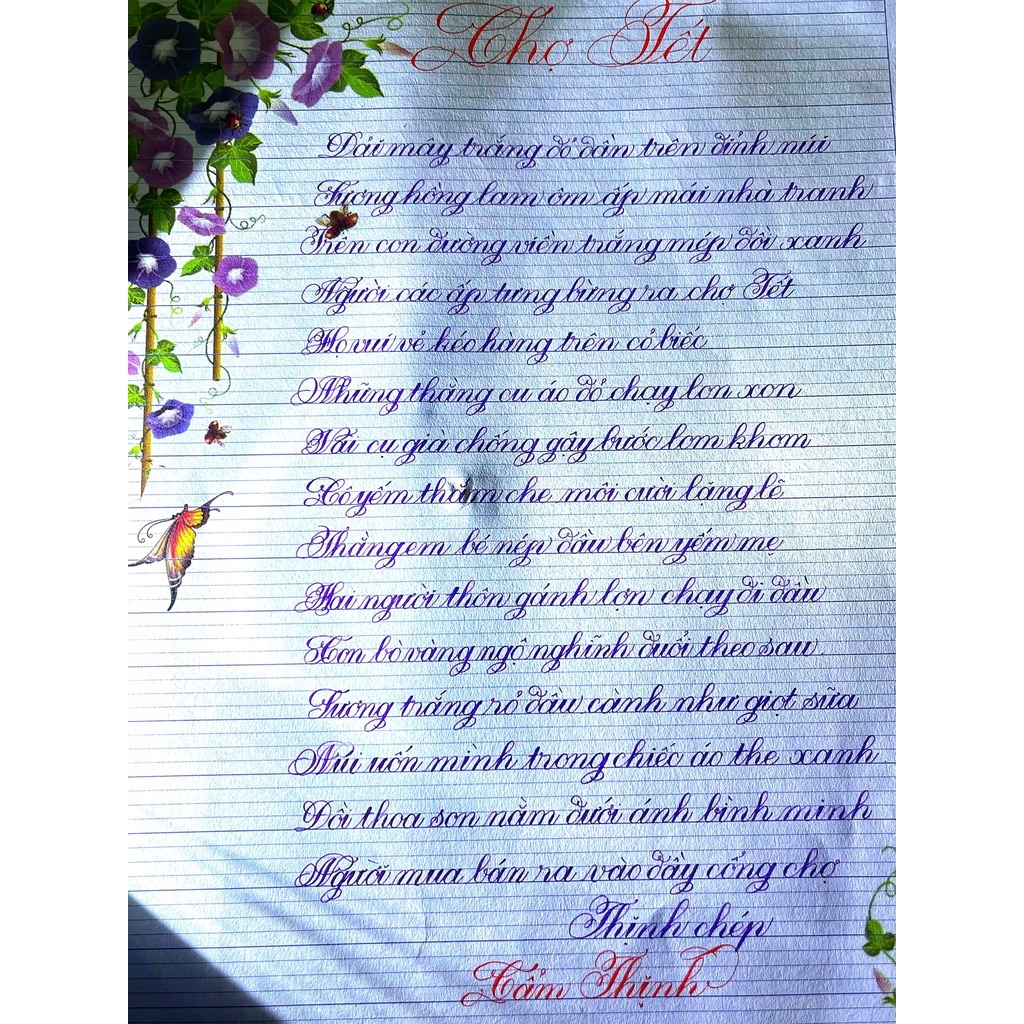 Chợ Tết
Dải mây trắng đỏ dần trên đỉnh núi
Sương hồng lam ôm ấp mái nhà tranh
Trên con đường viền trắng mép đồi xanh
Người các ấp tưng bừng ra chợ Tết
Họ vui vẻ kéo hàng trên cỏ biếc
Những thằng cu áo đỏ chạy lon xon
Vài cụ già chống gậy bước lom khom
Cô yếm thắm che môi cười lặng lẽ
Thằng em bé nép đầu bên yếm mẹ
Hai người thôn gánh lợn chạy đi đầu
Con bò vàng ngộ nghĩnh đuổi theo sau
Sương trắng rỏ đầu cành như giọt sữa
Núi uốn mình trong chiếc áo the xanh
Đồi thoa son nằm dưới ánh bình minh
Người mua bán ra vào đầy cổng chợ
Thịnh chép
Cẩm Thịnh